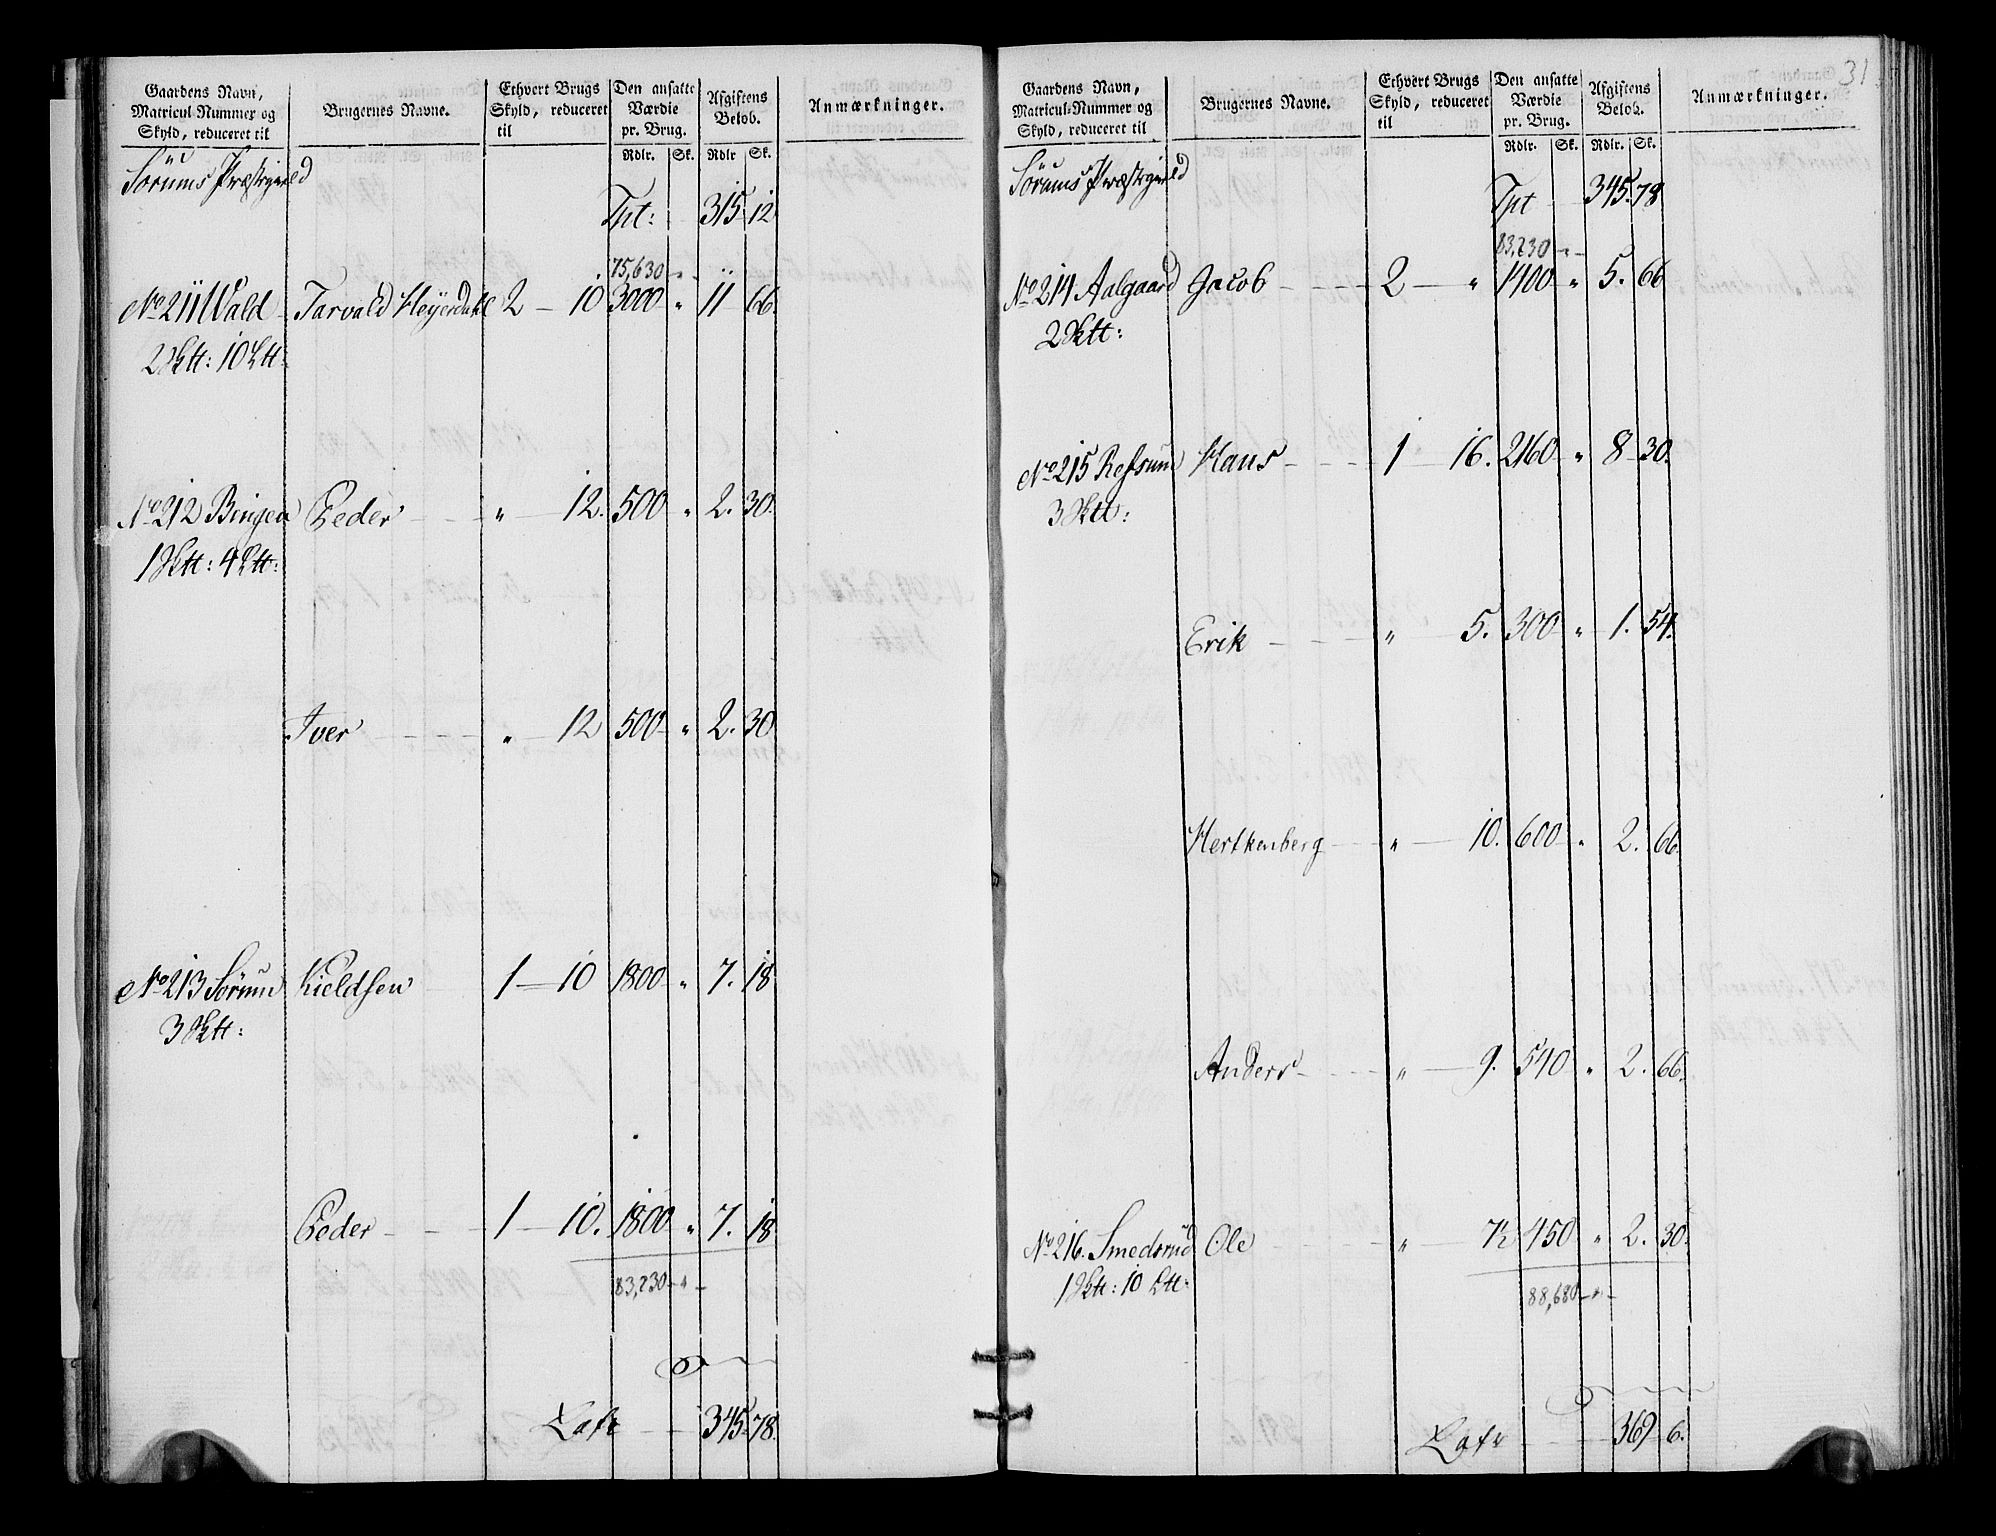 Gaardens Navn, Matricul-Nummer og Skyld, reduceret til | Brugernes Navne. | Ethvert Brugs Skyld, reduceret til | Den ansatte Værdie pr. Brug. Rdlr. Sk. | Afgiftens Beløb. Rdlr Sk. | Anmærkninger.
Sørums Præstegield
Tpt: 315. 12
75,630 - " -
No 211 Wald Tarvald Heyerdahl 2 - 10 3000 " 11 66.
2 Sktt: 10 Ltt:
No 212 Bingen Peder " 12. 500 " 2. 30.
1 Sktt: 4 Ltt:
Iver " 12 500 " 2. 30
No 213 Sørum Kieldsen 1 - 10 1800 " 7. 18
3 Sktt:
Peder 1 - 10. 1800 " 7. 18
83,230 - " -
Lafr 345. 78.
31
Gaardens Navn, Matricul-Nummer og Skyld, reduceret til | Brugernes Navne. | Ethvert Brugs Skyld, reduceret til | Den ansatte Værdie pr. Brug. Rdlr. Sk. | Afgiftens Beløb. Rdlr. Sk. | Anmærkninger.
Sørums Præstegield
Tpt 345. 78
83,230 - " -
No 214 Aalgaard Jacob 2 - " 1400 " 5. 66
2 Sktt:
No 215 Refsum Hans 1 - 16. 2160 " 8 30.
3 Sktt:
Erik " 5. 300 " 1. 54.
Herkenberg " 10. 600 " 2. 66.
Anders " 9. 540 " 2. 66.
No 216. Smedsrud Ole " 7½ 450 " 2. 30.
1 Sktt: 10 Ltt:
88,680 - " -
Lafr 369 6.